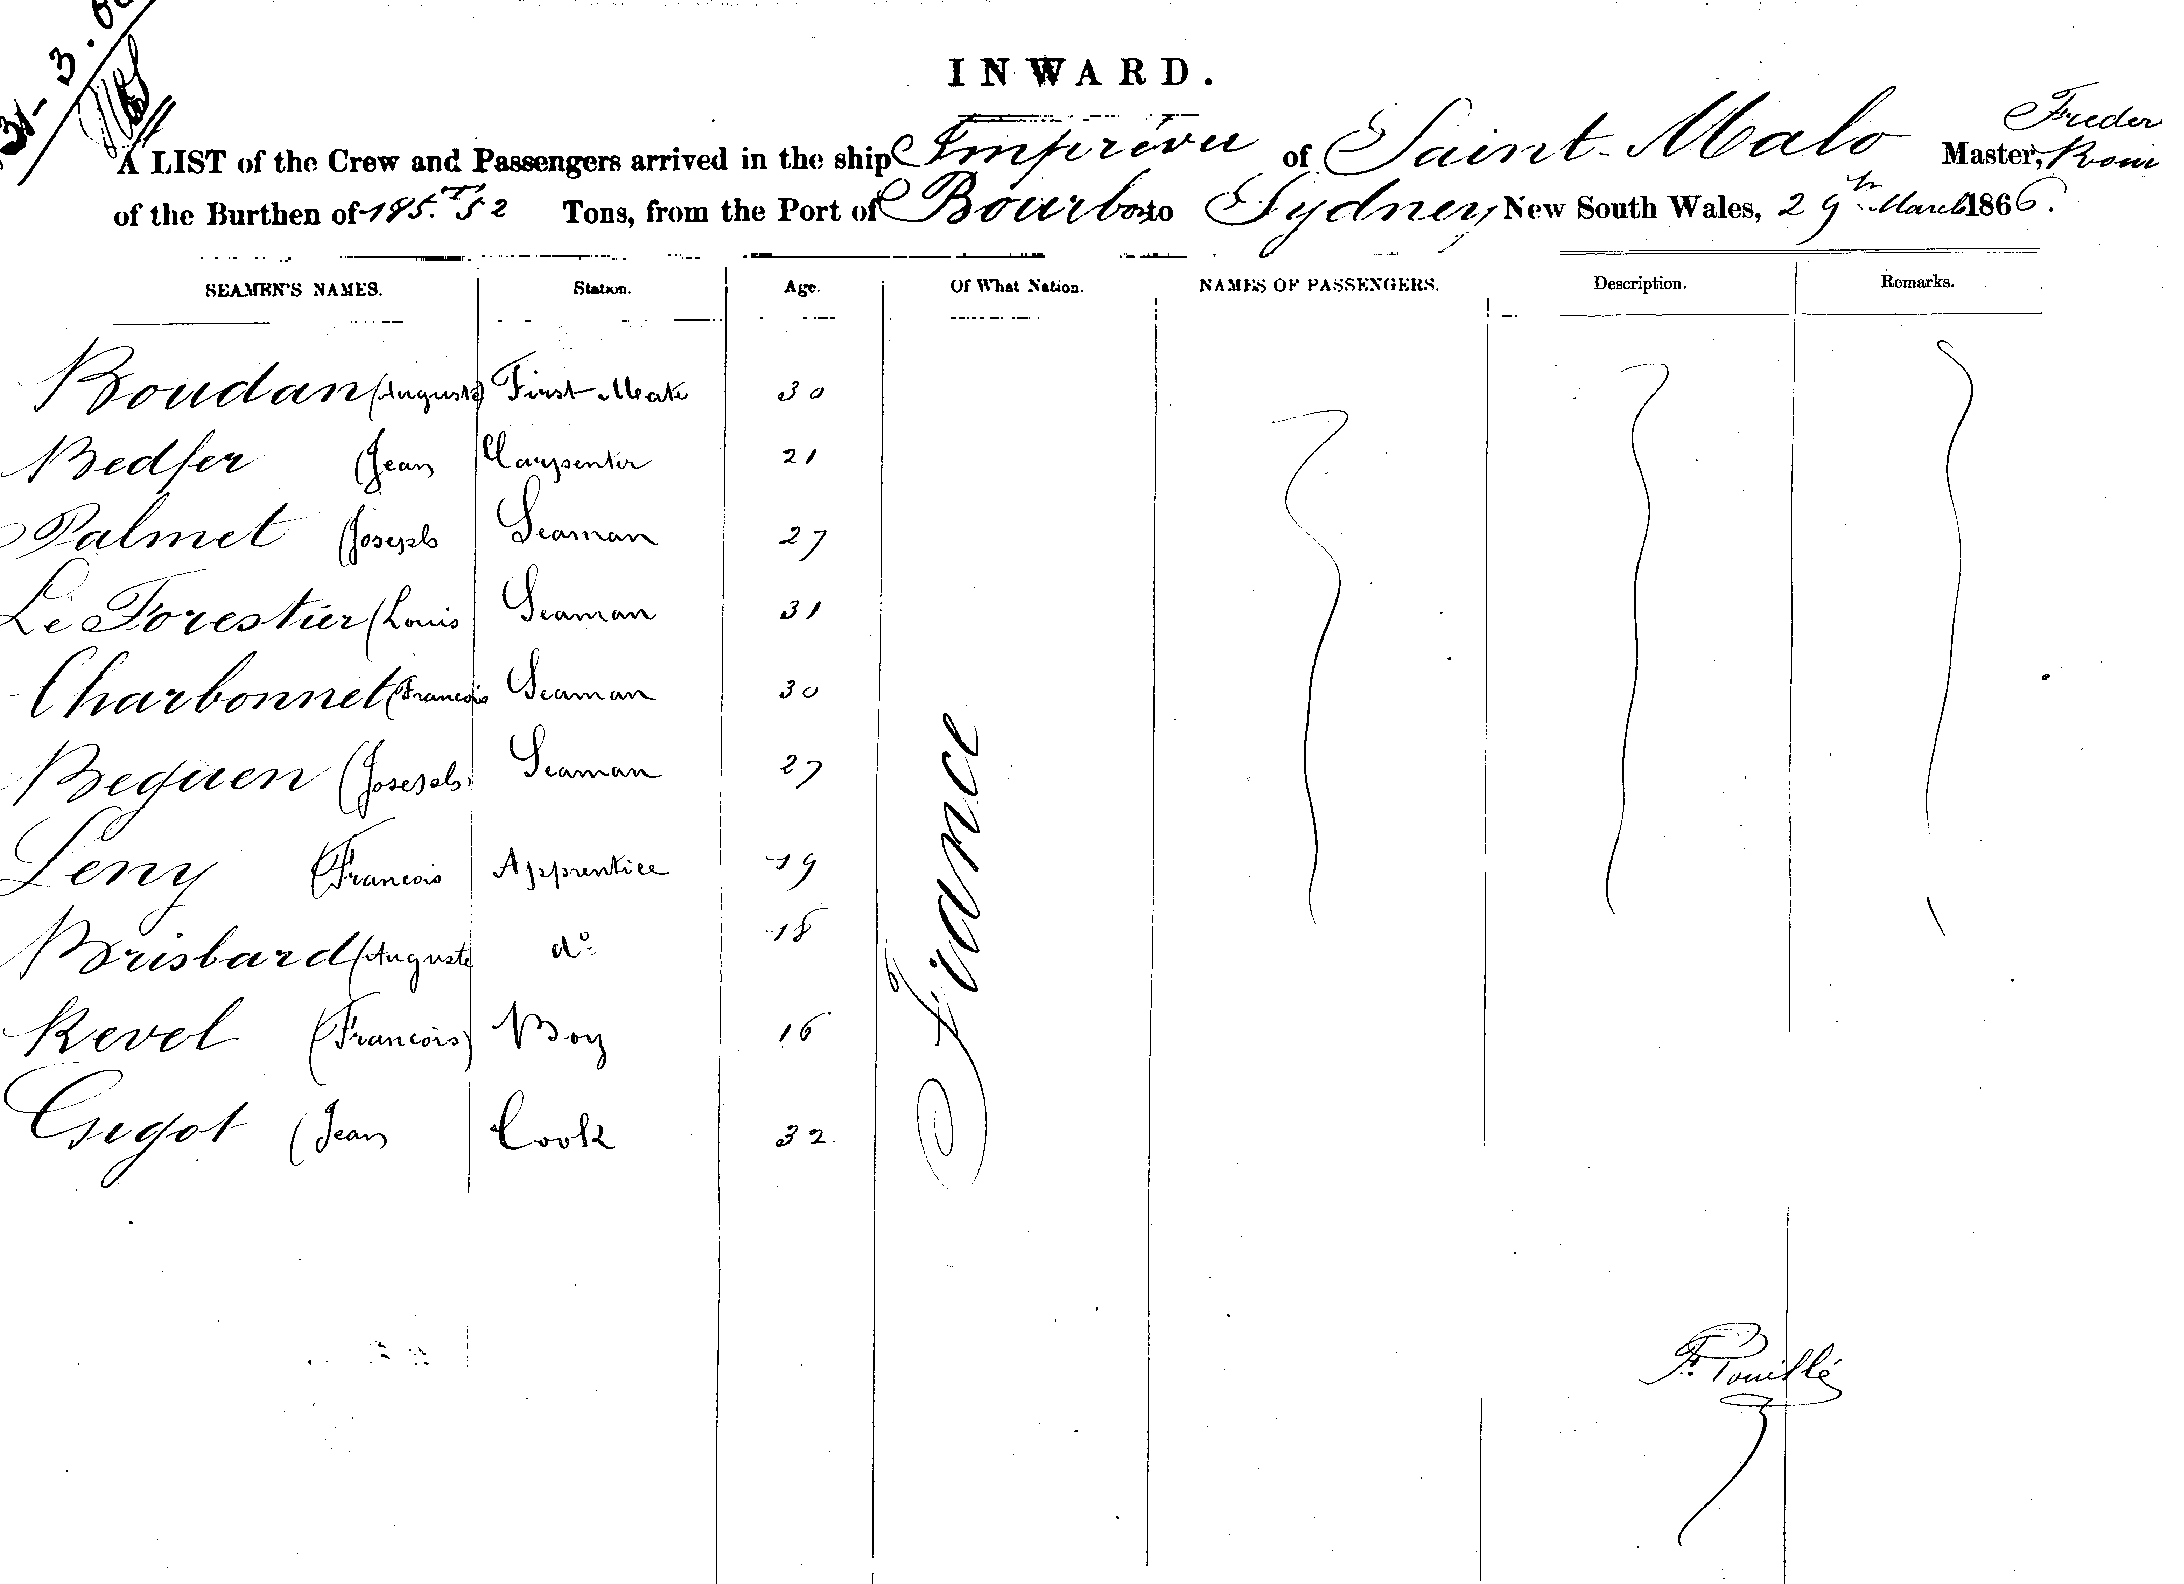 31-3.66
INWARD.
A LIST of the Crew and Passengers arrived in the ship Imprévu of Saint-Malo Master, Freder
of the Burthen of 195.Ts 52 Tons, from the Port of Bourbon to Sydney New South Wales, 29th March 1866.
SEAMEN'S NAMES. Station. Age. Of What Nation. NAMES OF PASSENGERS. Description. Remarks.
Boudan (Auguste) First-Meate 30
Bedfer (Jean Carpenter 21
Palmet (Joseph Seaman 27
Le Forestier (Louis Seaman 31
Charbonnet (Francois Seaman 30
Beguen (Joseph Seaman 27
Leny (Francois Apprentice 19
Brisbard (Auguste do 18
Revel (Francois) Boy 16
Gigot (Jean Cook 32
France
F. Pouillé